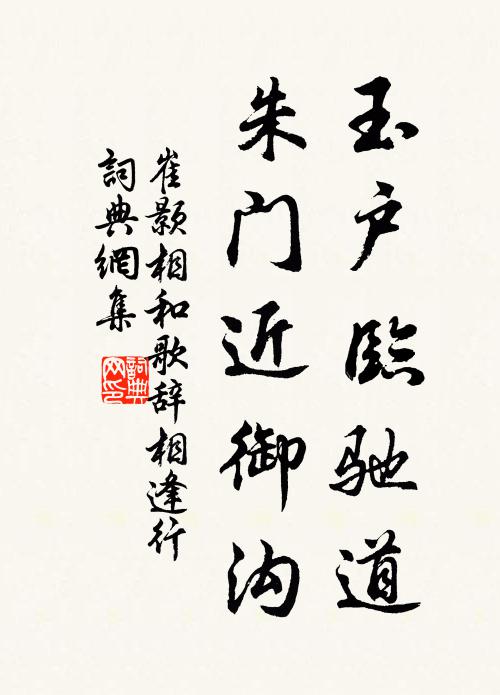 玉户臨馳道
朱门近御沟
崔颢相和歌辞相逢行
詞典網集
詞典
网印